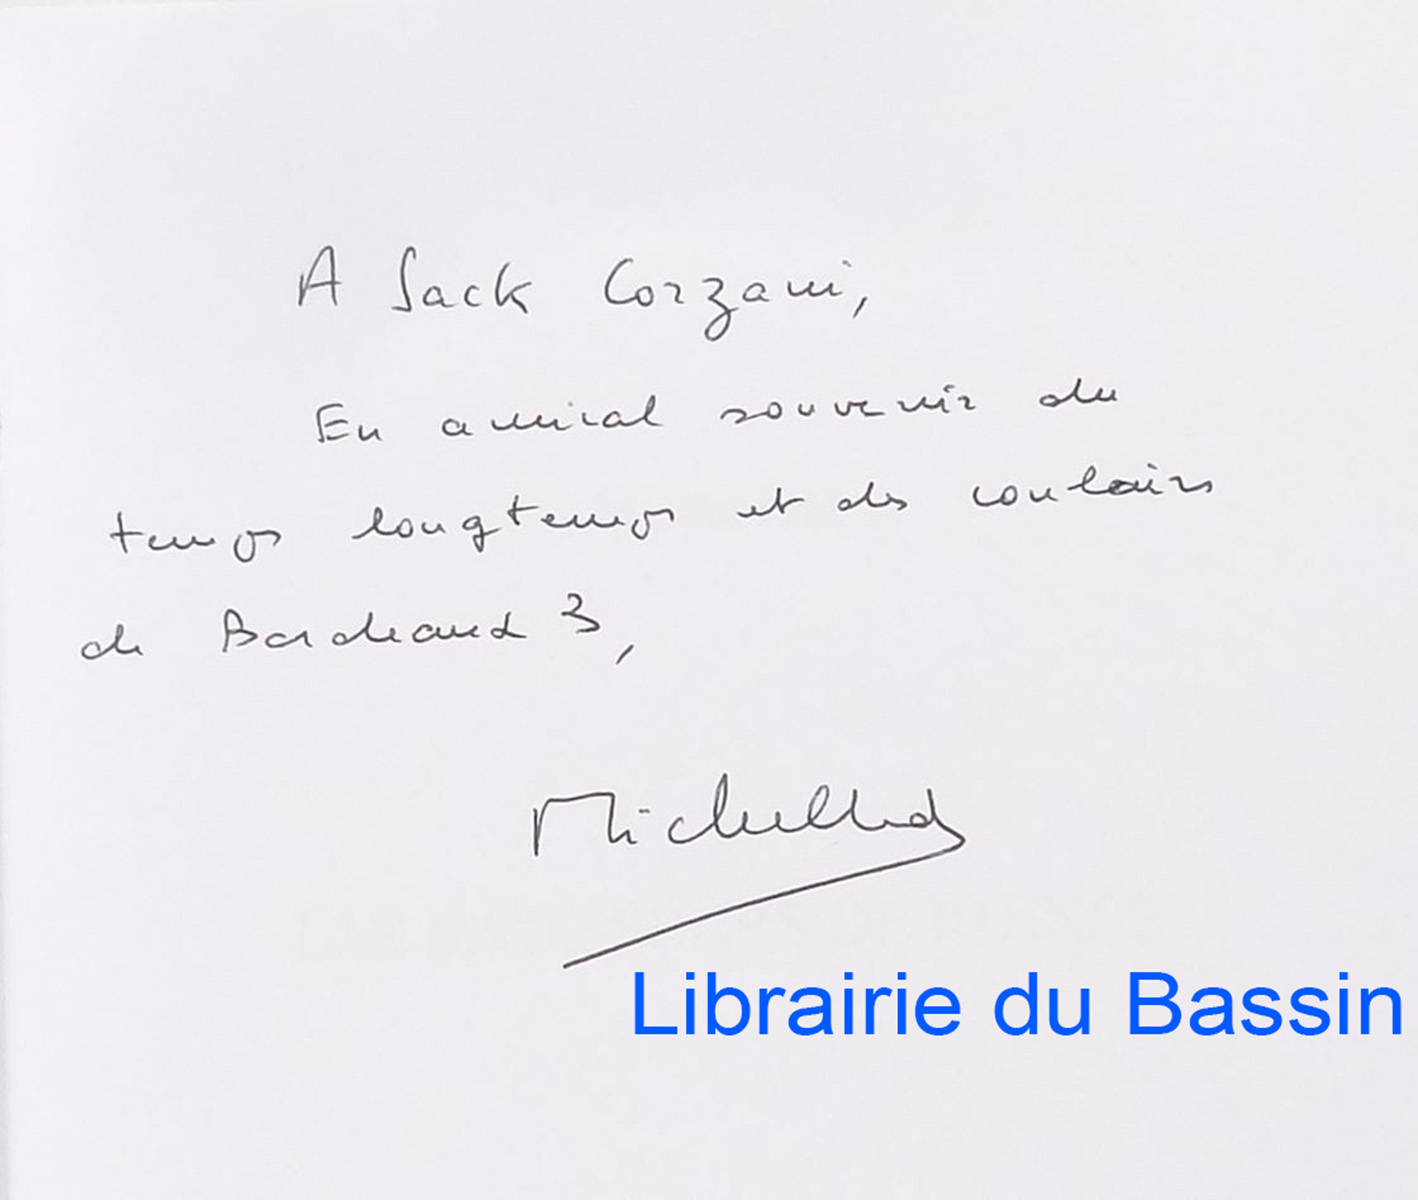 A Jack Corzani,
En amical souvenir du
temps longtemps et des couloirs
de Bordeaux 3,
Librairie du Bassin